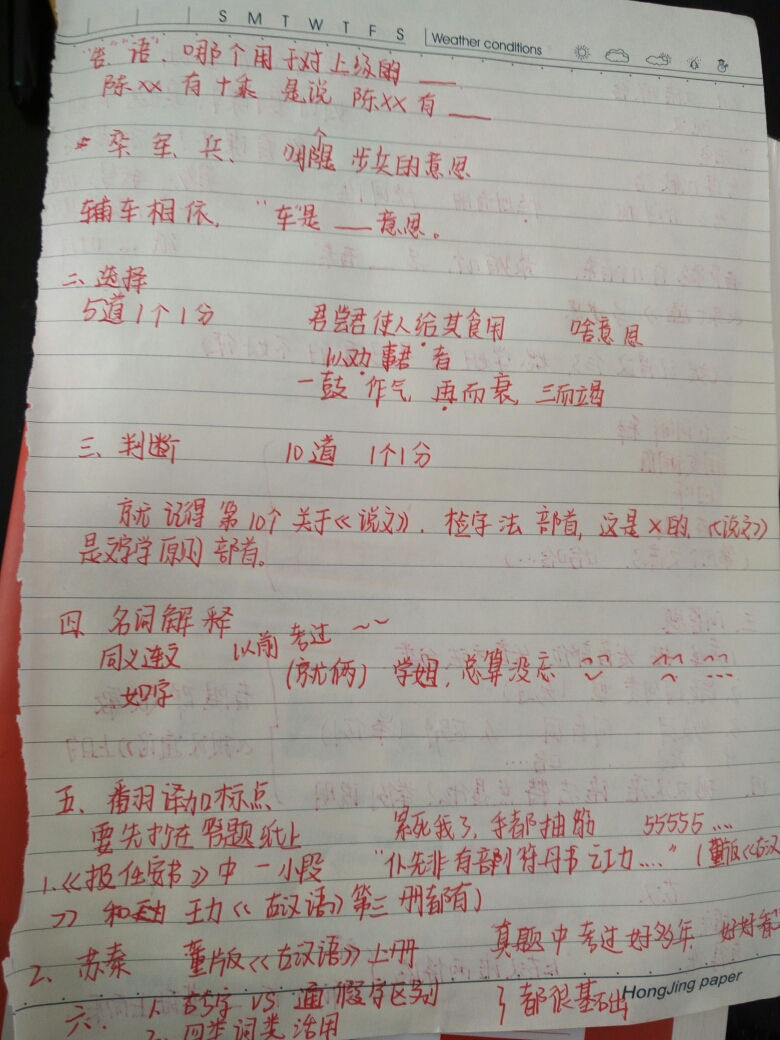 S M T W T F S Weather conditions
"告""语",哪个用于对上级的 ___
陈xx 有十乘 是说 陈xx有 ___
卒、军、兵、 哪是 步兵的意思
辅车相依, "车"是 ___ 意思。
二、选择
5道 1个1分 君尝君使人给其食用 啥意思
以劝事君者
一鼓作气 再而衰, 三而竭
三、判断 10道 1个1分
就记得第10个关于《说文》. 检字法部首, 这是x的,《说文》
是文字学原则部首。
四、名词解释
同义连文 以前考过 ~~
如字 (就俩) 学姐, 总算没忘
五、翻译加标点
要先抄在答题纸上 累死我了, 手都抽筋 55555 ....
1.《报任安书》中一小段 "仆先非有剖符丹书之功...." (董版《古汉
》和 王力《古汉语》第三册都有)
2、苏秦 董版《古汉语》上册 真题中考过好多年 好好看
六. 1. 古今字 VS 通假字区别 都很基础
2. 四类词类活用
HongJing paper